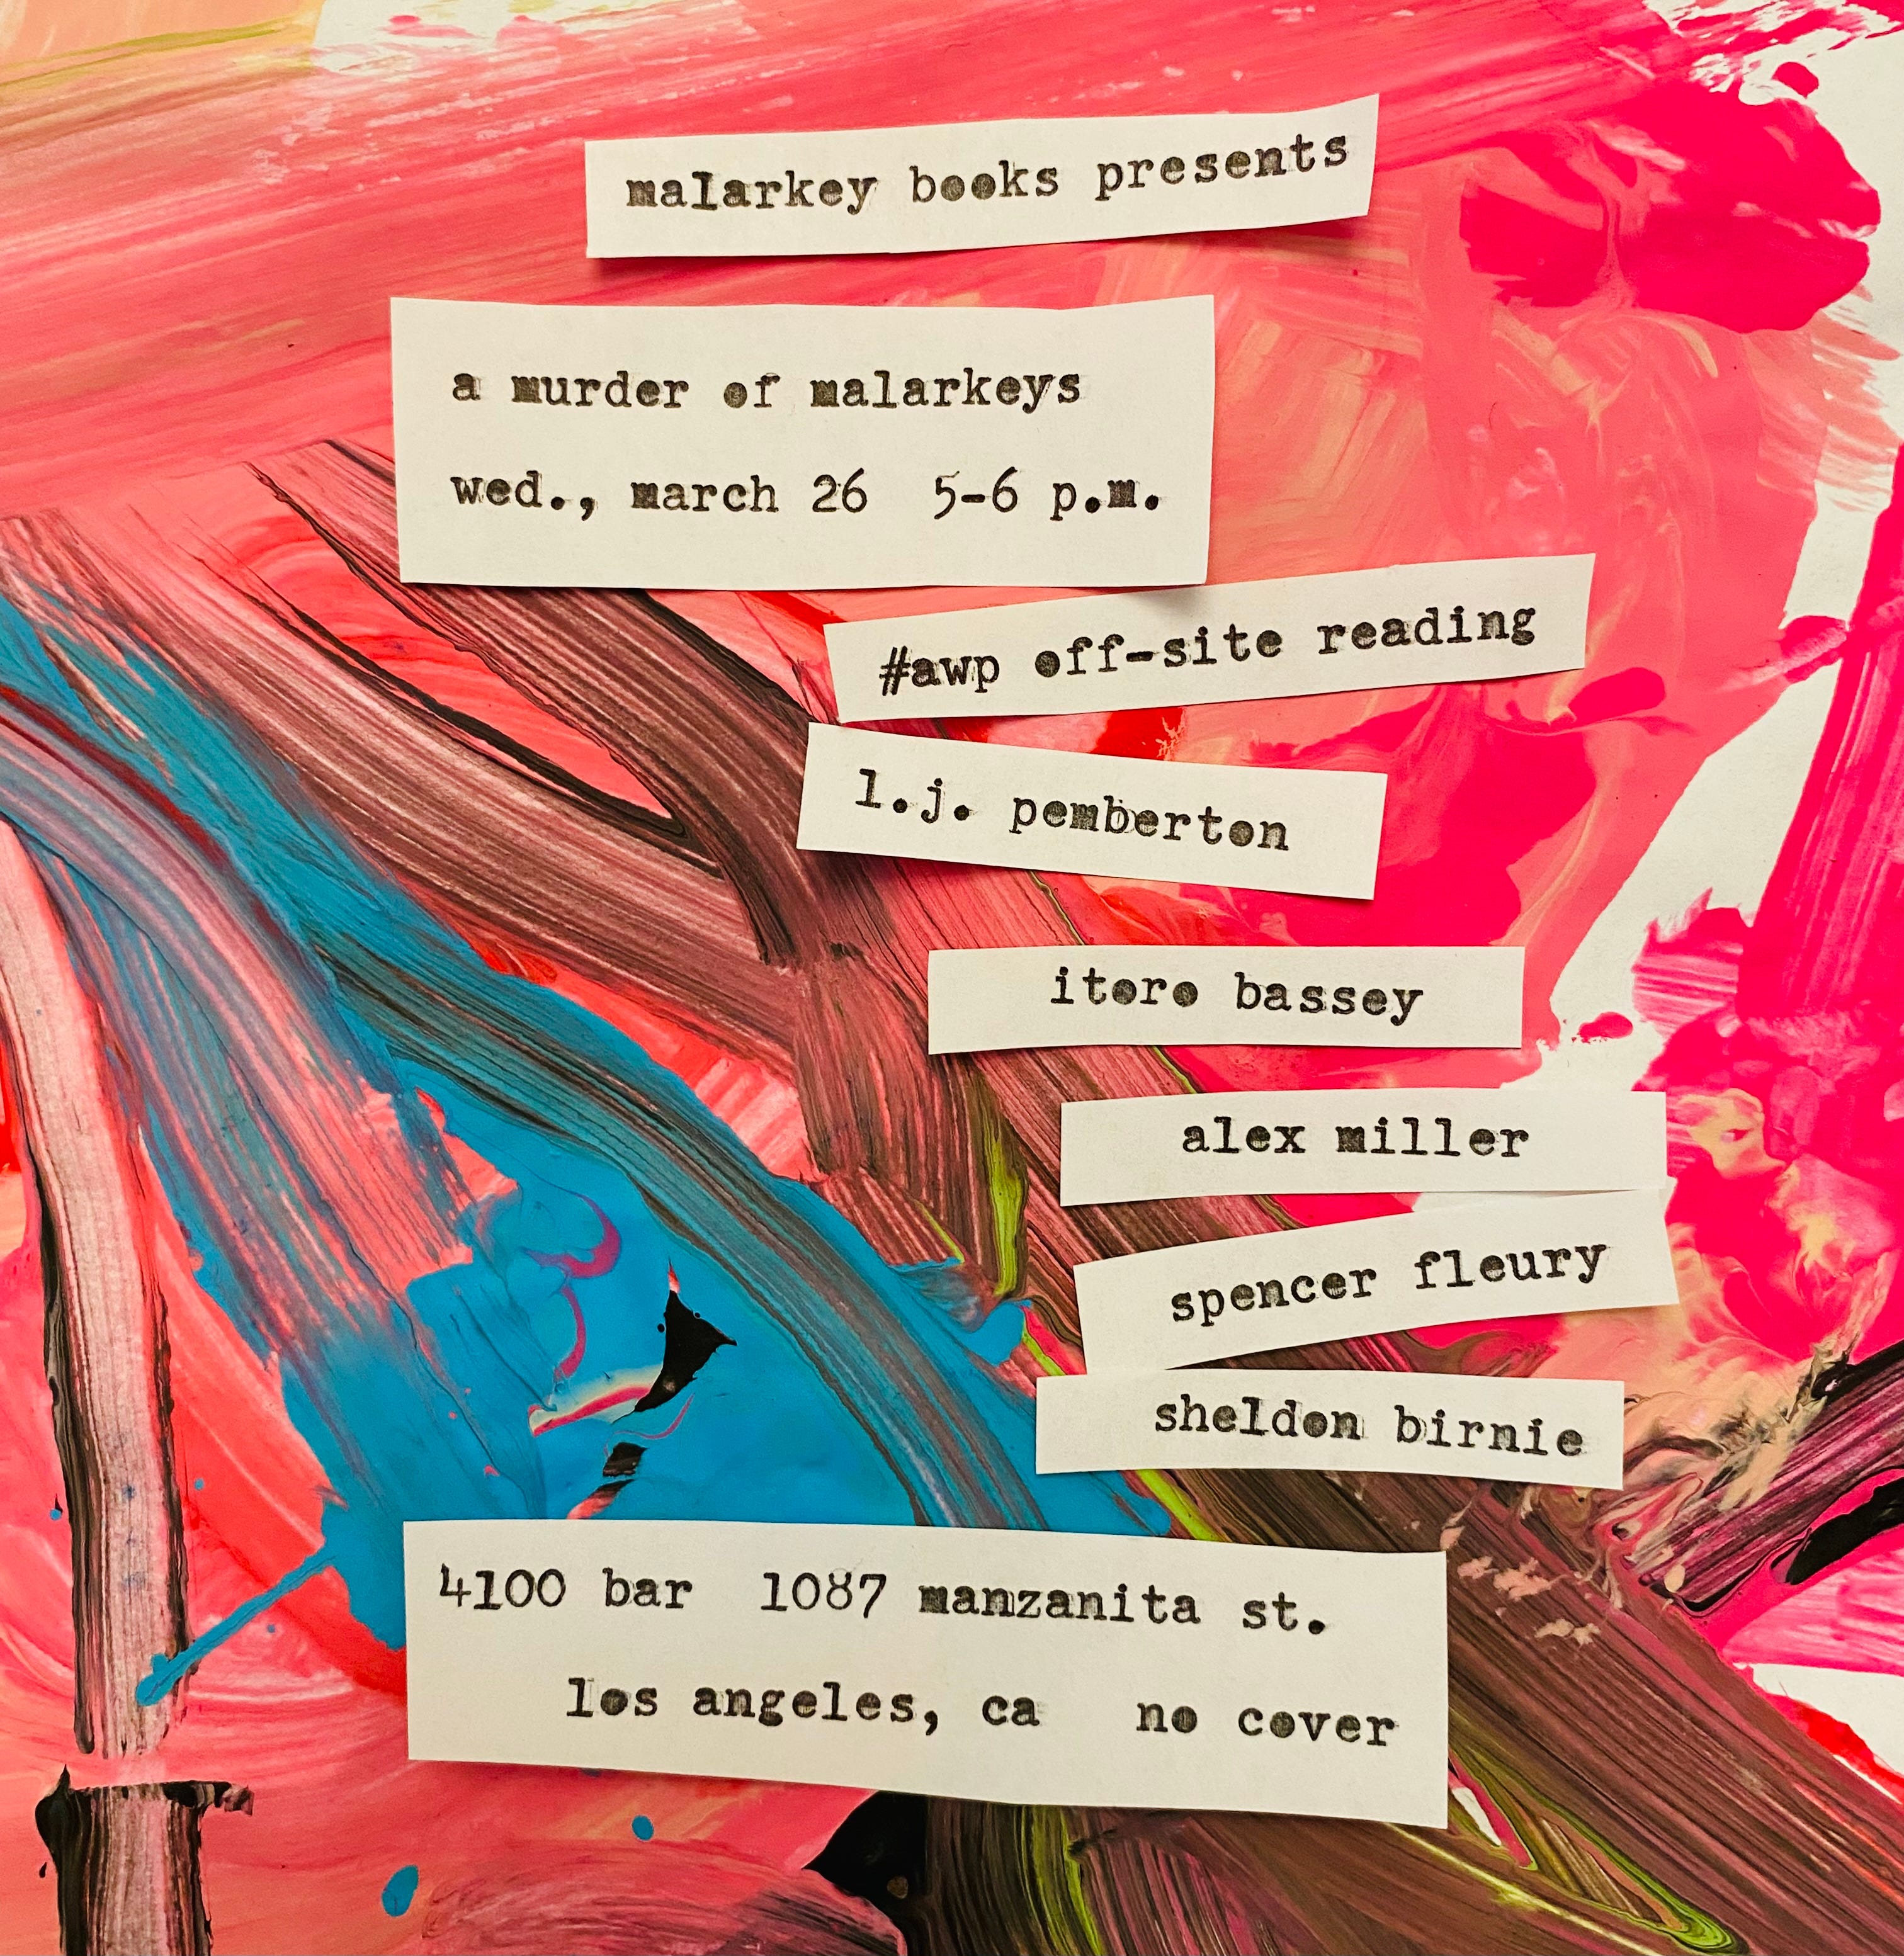 malarkey books presents
a murder of malarkeys
wed., march 26 5-6 p.m.
#awp off-site reading
l.j. pemberton
itoro bassey
alex miller
spencer fleury
sheldon birnie
4100 bar 1087 manzanita st.
los angeles, ca no cover